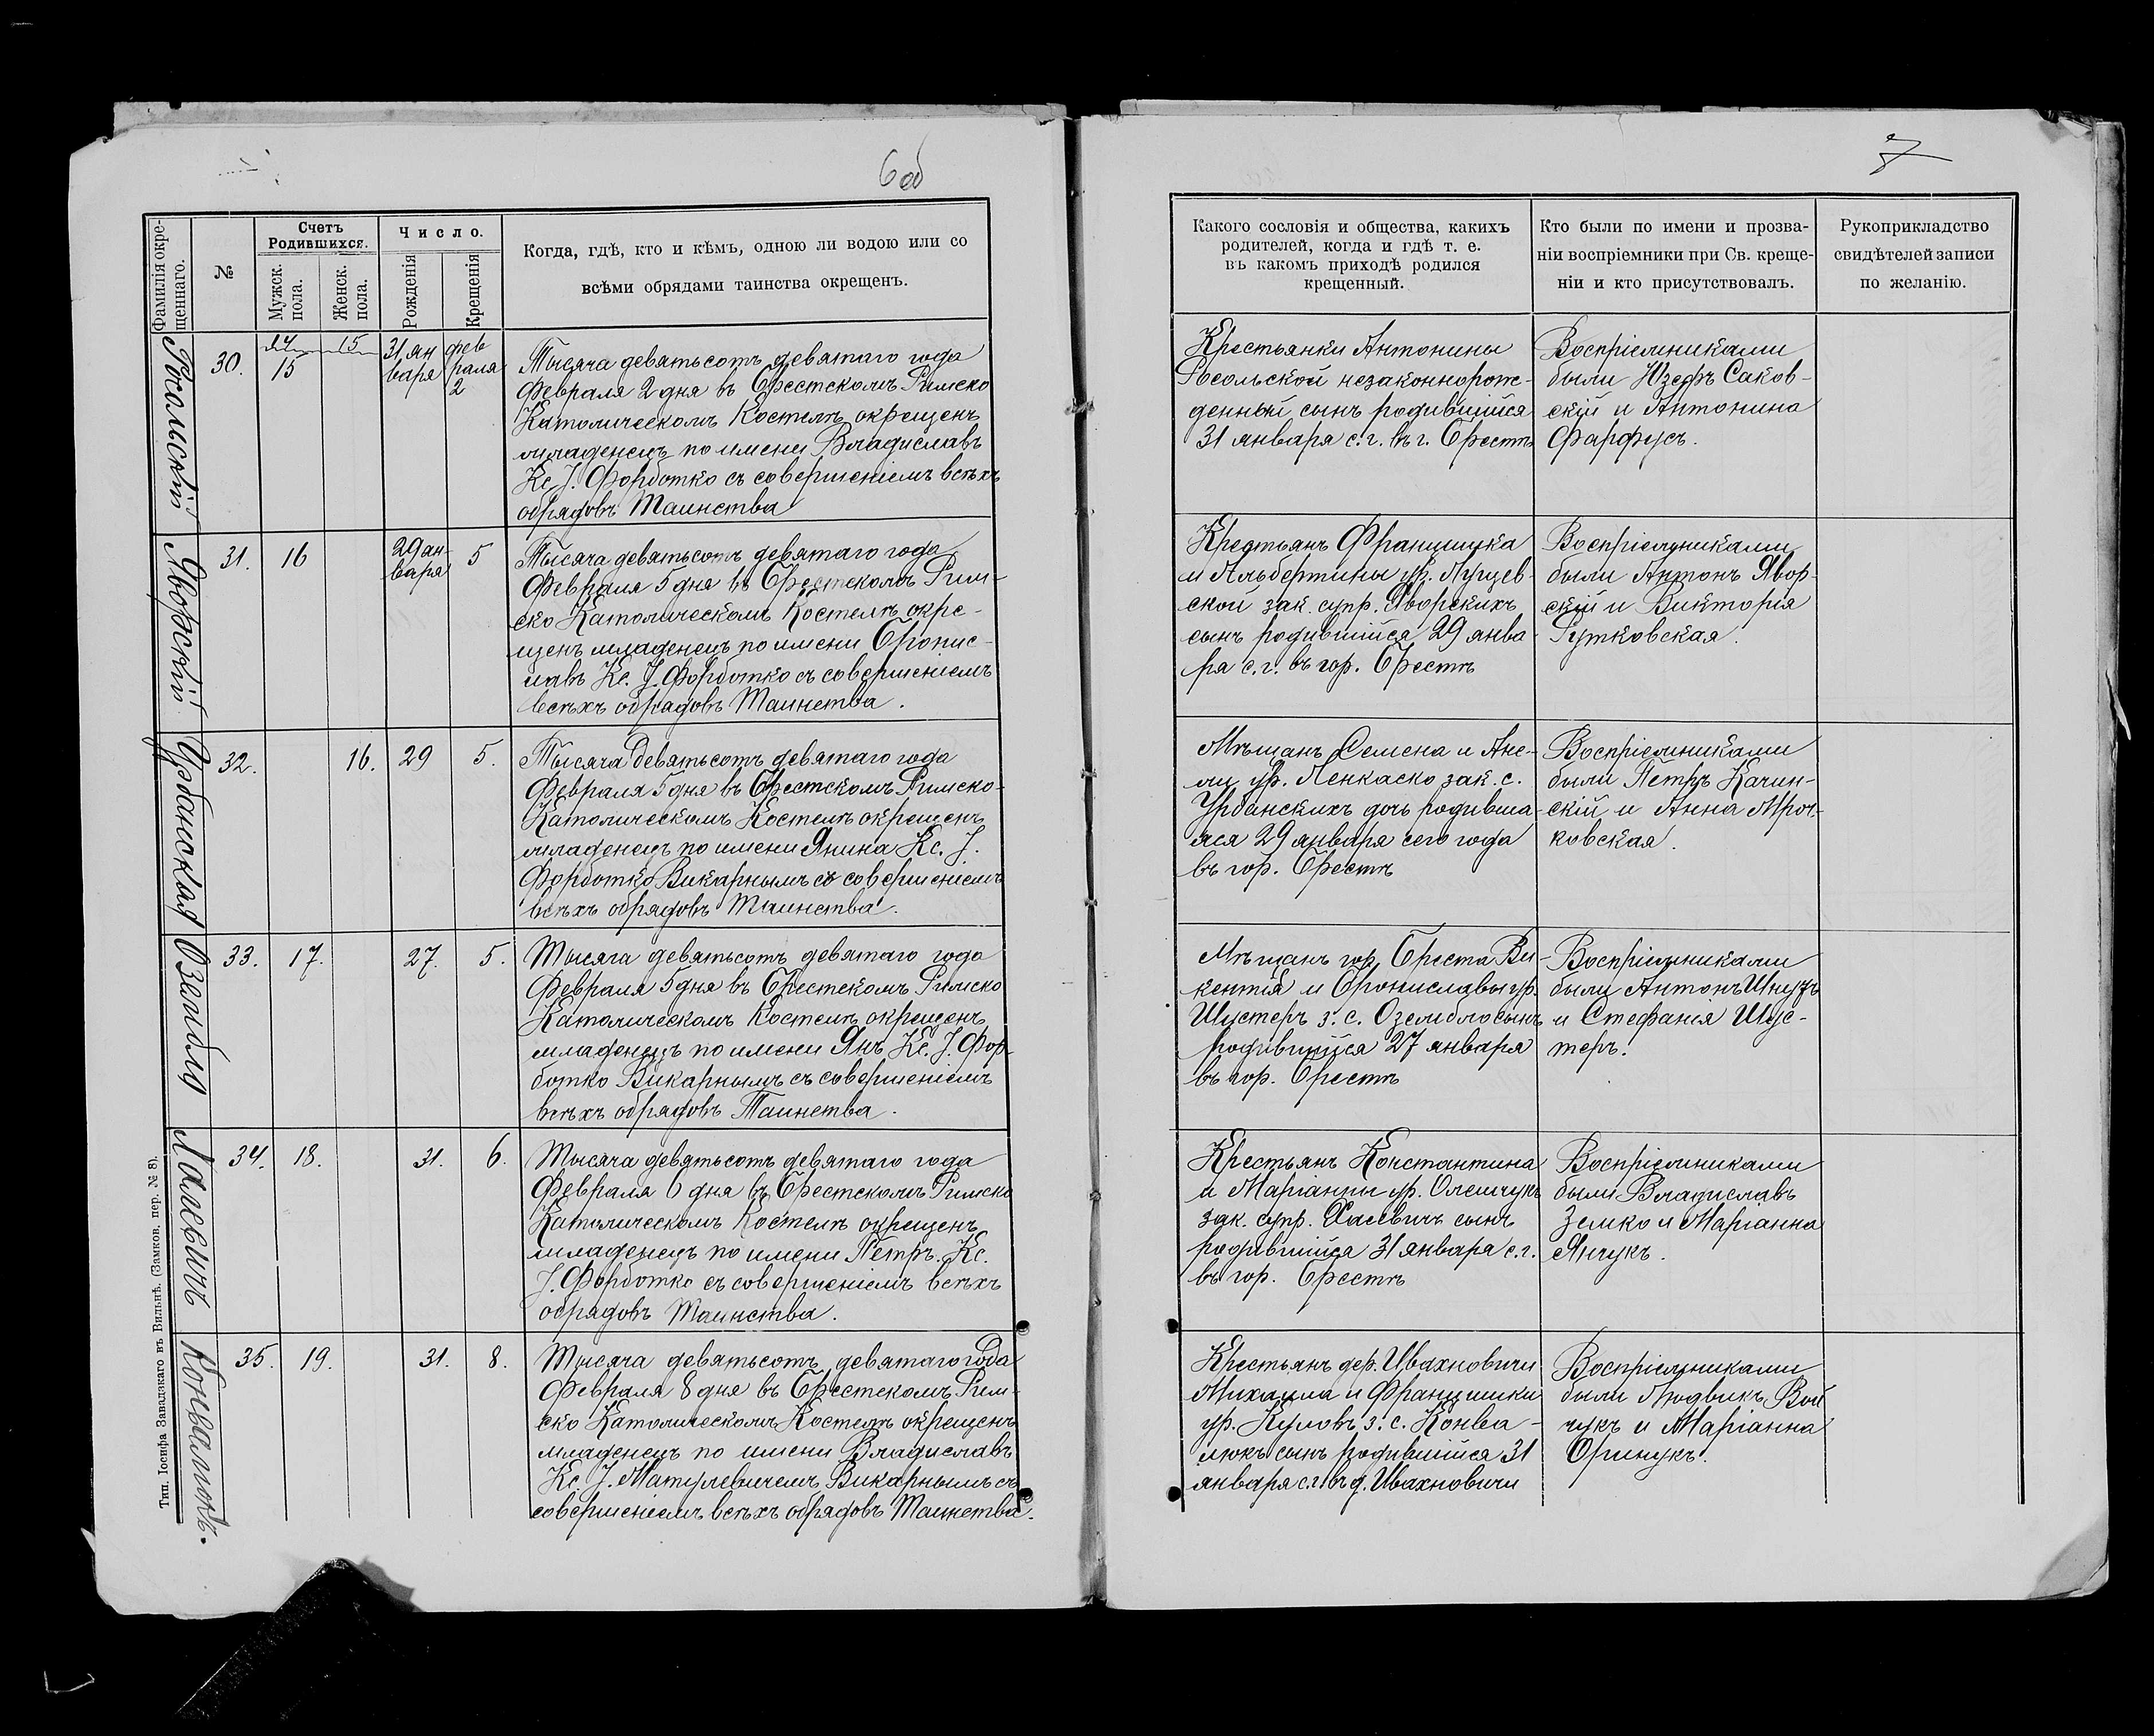 6 об
7
Фамилія окре-
щеннаго.
№
Счетъ
Родившихся.
Мужск.
пола.
Женск.
пола.
Число.
Рожденія
Крещенія
Когда, гдѣ, кто и кѣмъ, одною ли водою или со
всѣми обрядами таинства окрещенъ.
Какого сословія и общества, какихъ
родителей, когда и гдѣ т. е.
въ какомъ приходѣ родился
крещенный.
Кто были по имени и прозва-
ніи воспріемники при Св. креще-
ніи и кто присутствовалъ.
Рукоприкладство
свидѣтелей записи
по желанію.
Росольскій
30.
14 15
15
31 ян
варя
фев
раля
2
Тысяча девятьсотъ девятаго года
Февраля 2 дня въ Брестскомъ Римско
Католическомъ Костелѣ окрещенъ
младенецъ по имени Владиславъ
Кс. J. Форботко съ совершеніемъ всѣхъ
обрядовъ Таинства
Крестьянки Антонины
Росольской незаконнорож-
денный сынъ родившійся
31 января с. г. въ г. Брестѣ
Воспріемниками
были Юзефъ Саков-
скій и Антонина
Фарфусъ.
Яворскій
31.
16
29 ян-
варя
5
Тысяча девятьсотъ девятаго года
Февраля 5 дня въ Брестскомъ Рим-
ско Католическомъ Костелѣ окре-
щенъ младенецъ по имени Бронис-
лавъ Кс. J. Форботко съ совершеніемъ
всѣхъ обрядовъ Таинства.
Крестьянъ Францишка
и Альбертины ур. Луцев-
ской зак. супр. Яворскихъ
сынъ родившійся 29 янва-
ря с. г. въ гор. Брестѣ
Воспріемниками
были Антонъ Явор-
скій и Викторія
Рутковская.
Урбанская
32.
16.
29
5.
Тысяча девятьсотъ девятаго года
Февраля 5 дня въ Брестскомъ Римско-
Католическомъ Костелѣ окрещенъ
младенецъ по имени Янина Кс. J.
Форботко Викарнымъ съ совершеніемъ
всѣхъ обрядовъ Таинства.
Мѣщанъ Семена и Ане-
ли ур. Ленкаско зак. с.
Урбанскихъ дочь родивша-
яся 29 января сего года
въ гор. Брестѣ
Воспріемниками
были Петръ Качин-
скій и Анна Мроч-
ковская.
Озембло
33.
17.
27.
5.
Тысяча девятьсотъ девятаго года
Февраля 5 дня въ Брестскомъ Римско
Католическомъ Костелѣ окрещенъ
младенецъ по имени Янъ Кс. J. Фор-
ботко Викарнымъ съ совершеніемъ
всѣхъ обрядовъ Таинства.
Мѣщанъ гор. Бреста Ви-
кентія и Брониславы ур.
Шустеръ з. с. Озембло сынъ
родившійся 27 января
въ гор. Брестѣ
Воспріемниками
были Антонъ
и Стефанія Шус-
теръ.
34.
18.
31.
6.
Тысяча девятьсотъ девятаго года
Февраля 6 дня въ Брестскомъ Римско
Католическомъ Костелѣ окрещенъ
младенецъ по имени Петръ. Кс.
J. Форботко съ совершеніемъ всѣхъ
обрядовъ Таинства.
Крестьянъ Константина
и Маріанны ур. Олешчукъ
зак. супр. сынъ
родившійся 31 января с. г.
въ гор. Брестѣ
Воспріемниками
были Владиславъ
Земко и Маріанна
Янчукъ.
Конвалюкъ.
35.
19.
31.
8.
Тысяча девятьсотъ девятаго года
Февраля 8 дня въ Брестскомъ Рим-
ско Католическомъ Костелѣ окрещенъ
младенецъ по имени Владиславъ
Кс. J. Матулевичемъ Викарнымъ съ
совершеніемъ всѣхъ обрядовъ Таинства.
Крестьянъ дер. Ивахновичи
Михаила и Францишки
ур. Куловъ з. с. Конва-
люкъ сынъ родившійся 31
января с. г. въ д. Ивахновичи
Воспріемниками
были Людвикъ Вой
чукъ и Маріанна
Оринукъ.
Тип. Іосифа Завадзкаго въ Вильнѣ. (Замков. пер. № 8).